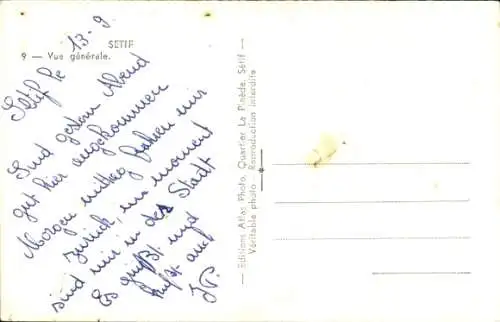 SETIF
9 — Vue générale.
Setif le 13-9.
Sind gestern Abend
gut hier angekommen
Morgen mittag fahren wir
zurück, im moment
sind wir in der Stadt
Es grüßt und
küßt auch
— Editions Atlas Photo, Quartier La Pinède, Sétif —
Véritable photo - Reproduction interdite